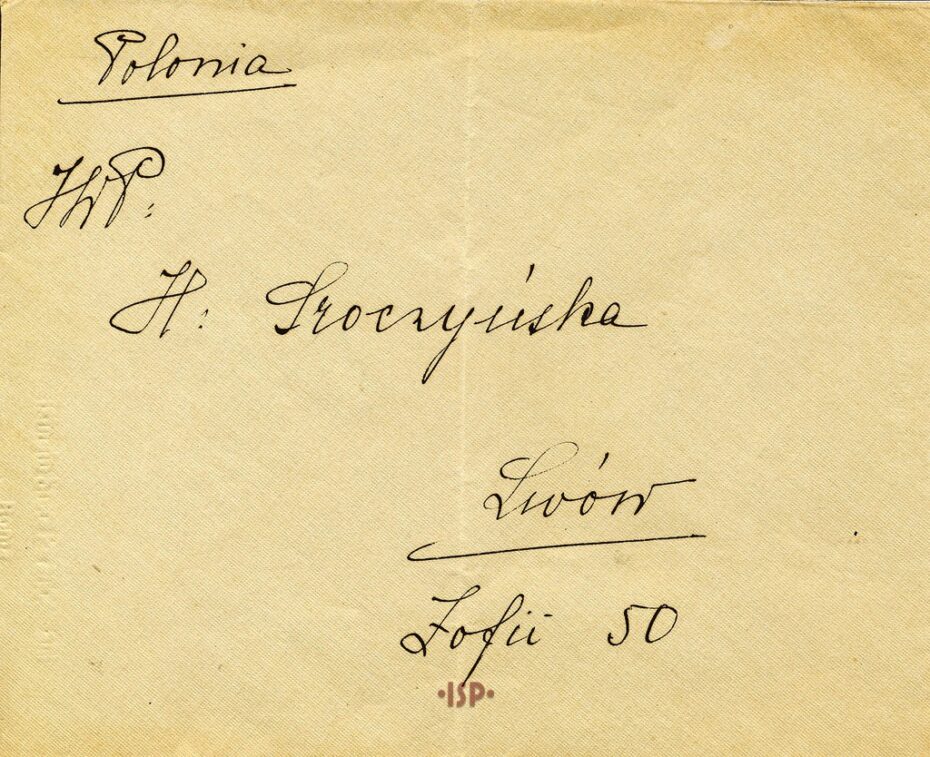 Polonia
JWP.
H. Sroczyńska
Lwów
Zofii 50
•ISP•